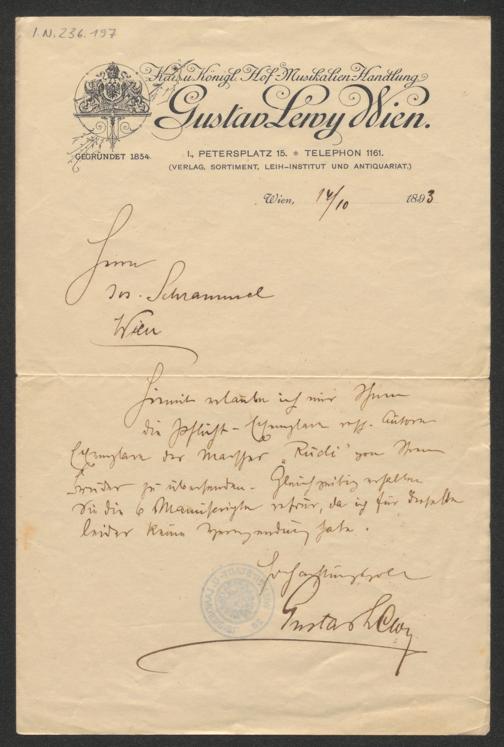 I.N. 236.197
Kais. u. Königl. Hof-Musikalien-Handlung
Gustav Lewy Wien.
GEGRÜNDET 1854.
I., PETERSPLATZ 15. * TELEPHON 1161.
(VERLAG, SORTIMENT, LEIH-INSTITUT UND ANTIQUARIAT.)
Wien, 14/10 1893
Herrn
Jos. Schrammel
Wien
Hiermit erlaube ich mir Ihnen
die Pflicht-Exemplare resp. Autoren
Exemplare der Märsche "Rudi" von Ihrem
Bruder zu übersenden. Gleichzeitig erhalten
Sie die 6 Manuscripte retour, da ich für dieselben
leider keine Verwendung habe.
Hochachtungsvoll
Gustav Lewy